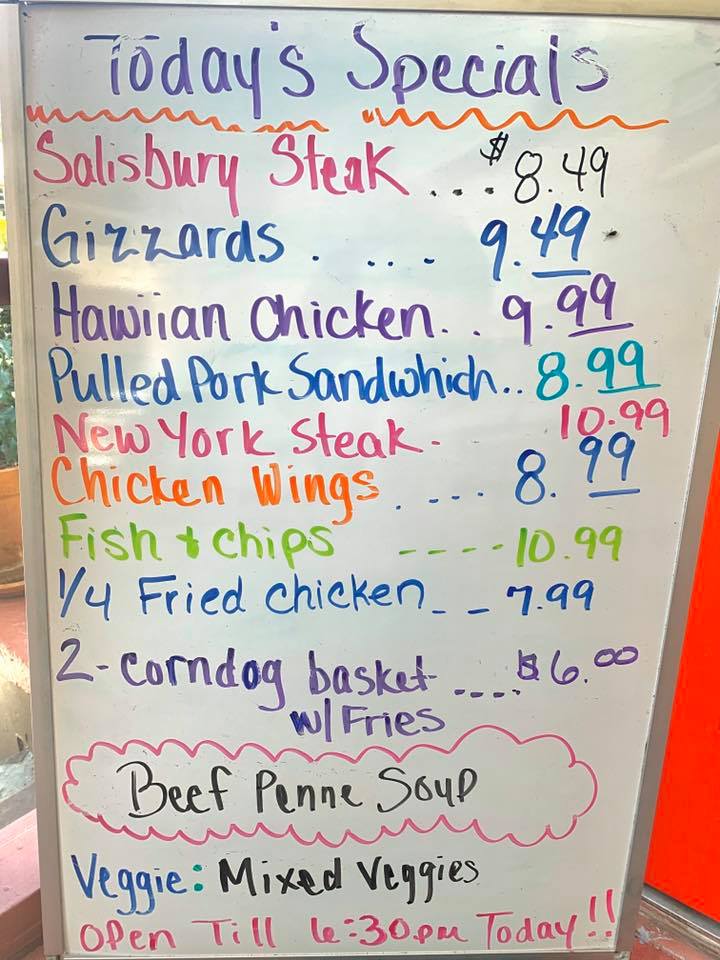 Today's Specials
Salisbury Steak ... $8.49
Gizzards . ... - 9.49
Hawiian Chicken. . 9.99
Pulled Pork Sandwhich.. 8.99
New York Steak - 10.99
Chicken Wings . . --- 8.99
Fish & chips ---- 10.99
1/4 Fried chicken _ _ 7.99
2-corndog basket ---. $6.00
w/ Fries
Beef Penne Soup
Veggie: Mixed Veggies
Open Till 6:30pm Today!!